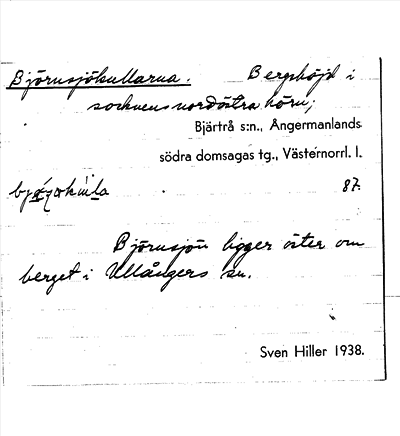 Björnsjökullarna. Bergshöjd i
socknens nordöstra hörn;
Bjärtrå s:n., Ångermanlands
södra domsagas tg., Västernorrl. l.
87.
Björnsjön ligger öster om
berget i Ullångers sn.
Sven Hiller 1938.